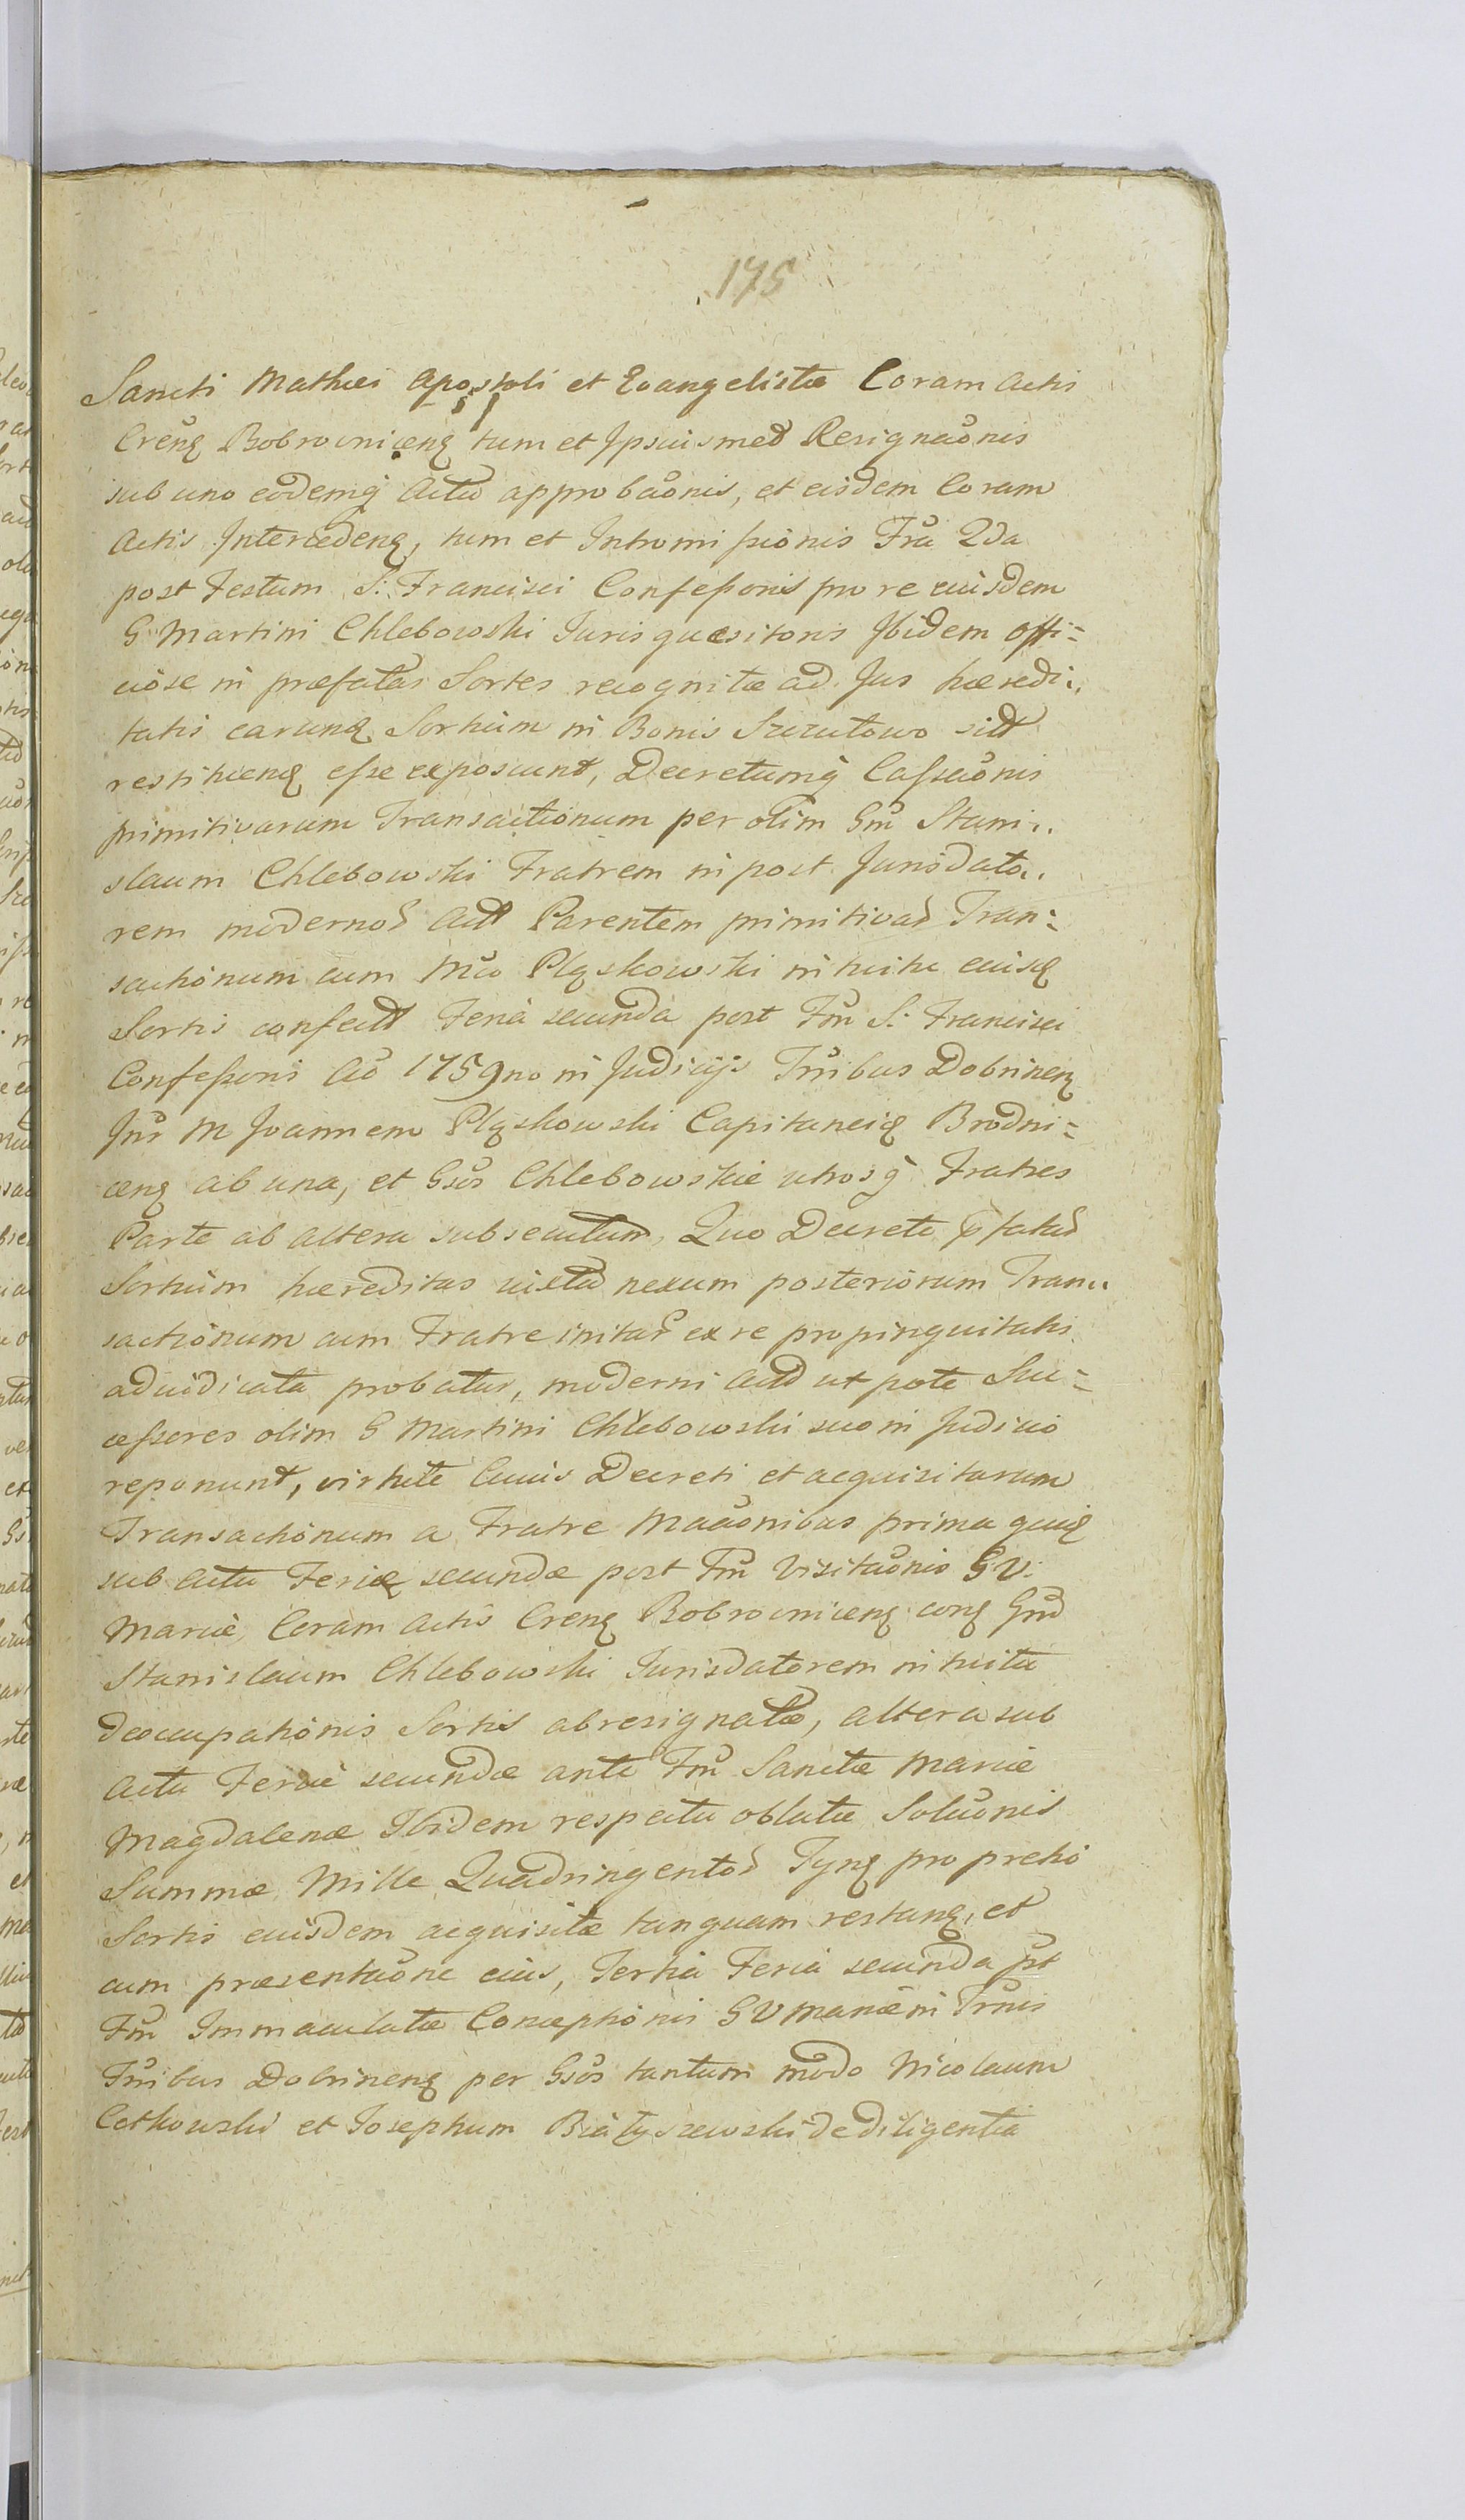 175
Sancti Mathæi Apostoli et Evangelistæ Coram Actis
Crenę Bobrovnicenę tum et Ipsiusmet Resignaōnis
sub uno eōdemq̃ Actu approbaōnis, et eisdem Coram
Actis Intercedenę, tum et Intromissionis Frã 2da
post Festum S: Francisci Confessoris pro re eiusdem
G Martini Chlebowski Iuris quæsitoris Ibidem offi=
ciose in præfatas Sortes recognitæ ad Jus hæredi..
tatis earunę Sortium in Bonis Szczutowo sitt
restituenę esse exposcunt, Decretumq̃ Cassaōnis
primitivarum Transactionum per olim Gm̃ Stani..
slaum Chlebowski Fratrem in post Jurisdato..
rem modernos Actt Parentem primitivas Tran=
sactionum cum Mco Pląskowski intuitu eiusę
Sortis confectt Feria secunda post Fm̃ S: Francisci
Confessoris Aō 1759no in Judicijs Tr̃ribus Dobrinenę
Int̃r M Joannem Pląskowski Capitaneię Brodni=
cenę ab una, et Gsōs Chlebowskie utrosq̃ Fratres
Parte ab altera subsecutum, Quo Decreto p̃fatas
Sortium hæreditas iuxta nexum posteriorum Tran..
sactionum cum Fratre initar̃ ex re propinquitatis
adiudicata probatur, moderni Actt ut pote Suc=
cessores olim G Martini Chlebowski suo in Judicio
reponunt, virtute Cuius Decreti et acquisitarum
Transactionum a Fratre Maaōnibus prima quię
sub Actu Feriæ secundæ post Fm̃ Visitaōnis B V.
Mariæ Coram Actis Crenę Bobrovnicenę conę Gm̃
Stanislaum Chlebowski Jurisdatorem intuitu
deoccupationis Sortis abresignatæ, altera sub
Actu Feriæ secundæ ante Fm̃ Sanctæ Mariæ
Magdalenæ Ibidem respectu oblatæ Soluōnis
Summæ Mille Quadringentos Tynę pro pretio
Sortis eiusdem acquisitæ tanquam restanę, et
cum præsentaōne eius, Tertia Feria secunda pst
Fm̃ Immaculatæ Conceptionis B V Mariæ in Tr̃nis
Tr̃ribus Dobrinenę per Gsōs tantum modo Nicolaum
Cetkowski et Josephum Białyszewski de diligentia